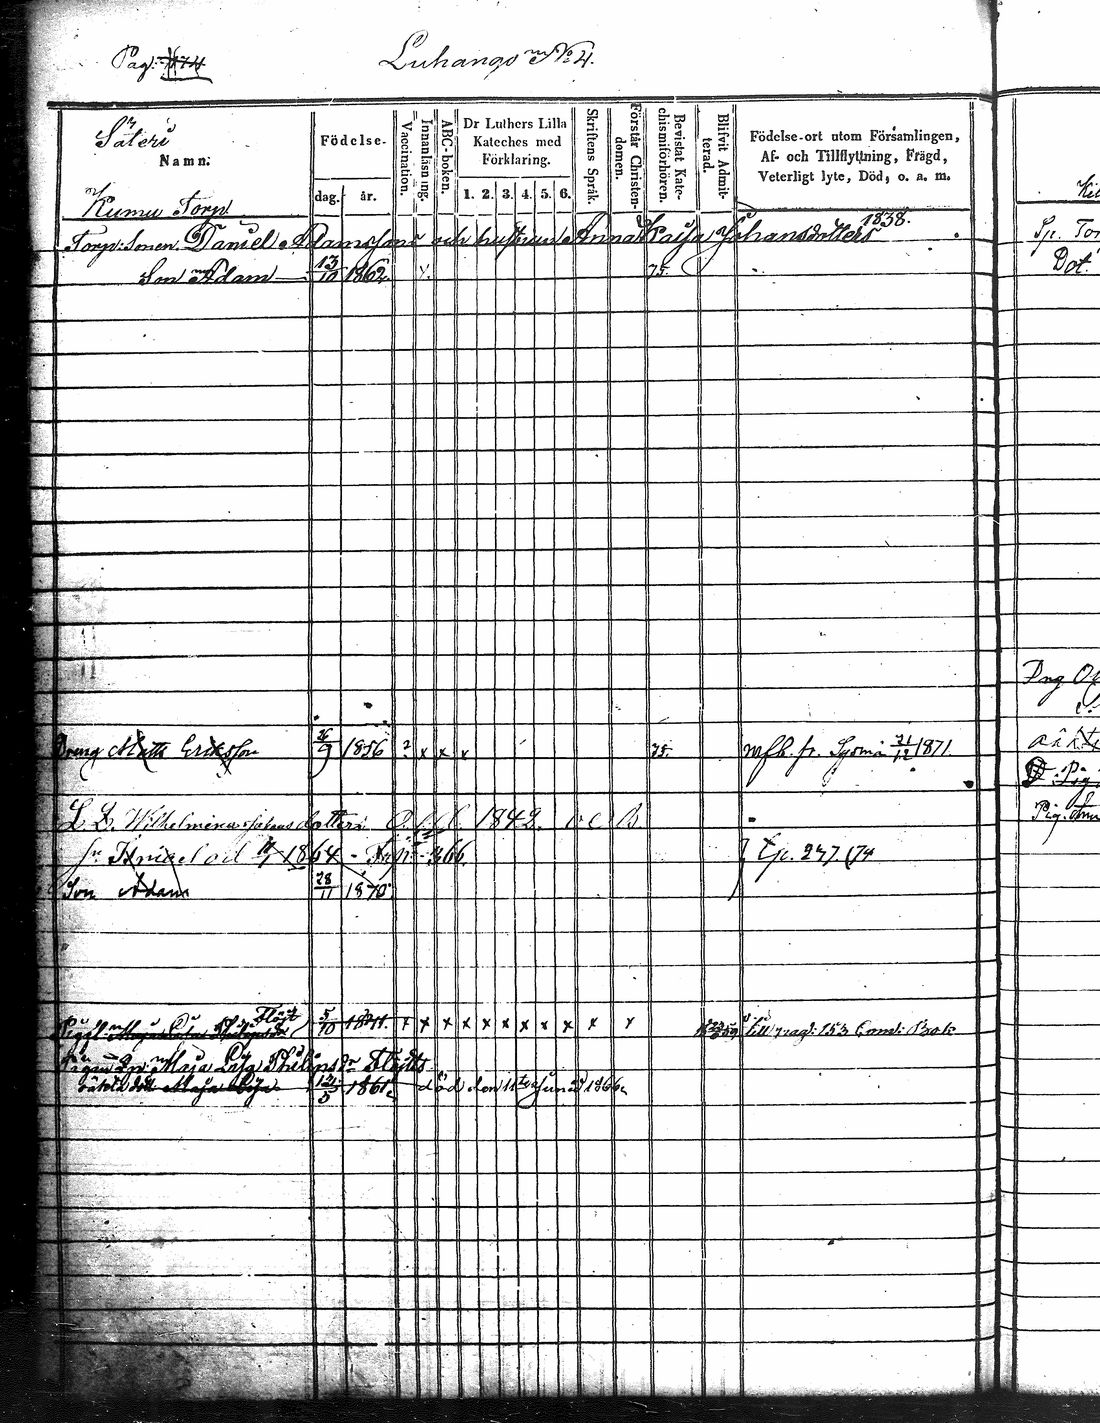 Pag: 174
Luhango No 4.
Säteri
Namn.
Födelse-
dag. år.
Vaccination.
Innanläsning.
ABC-boken.
Dr Luthers Lilla
Kateches med
Förklaring.
1. 2. 3. 4. 5. 6.
Skriftens Språk.
Förstår Christen-
domen.
Bevistat Kate-
chismiförhören.
Blifvit Admit-
terad.
Födelse-ort utom Församlingen,
Af- och Tillflyttning, Frägd,
Veterligt lyte, Död, o. a. m.
Kumu Torp
Torp: Sonen Daniel Adamssons och hustrun Anna Kaisa Johansdotters 1838.
Son Adam 13/10 1862 75.
Sp. Tor
Dot.
Dreng Matts Eriksson 26/9 1856 ? x x x 75. mfb. fr. Sysmä 31/12 1871
L. D. Wilhelmina Johansdotters 1842.
1864 - 366. 247 /74
Son Adam 28/11 1870
Flöjt
5/10 1841. x x x x x x x x x x x till pag: 153 Comb: Bok
Pigan Maja Lisa Philipsdr Flöjts
oäkta dott. Maja Lisa 12/5 1861. död den 11te Juni 1866.